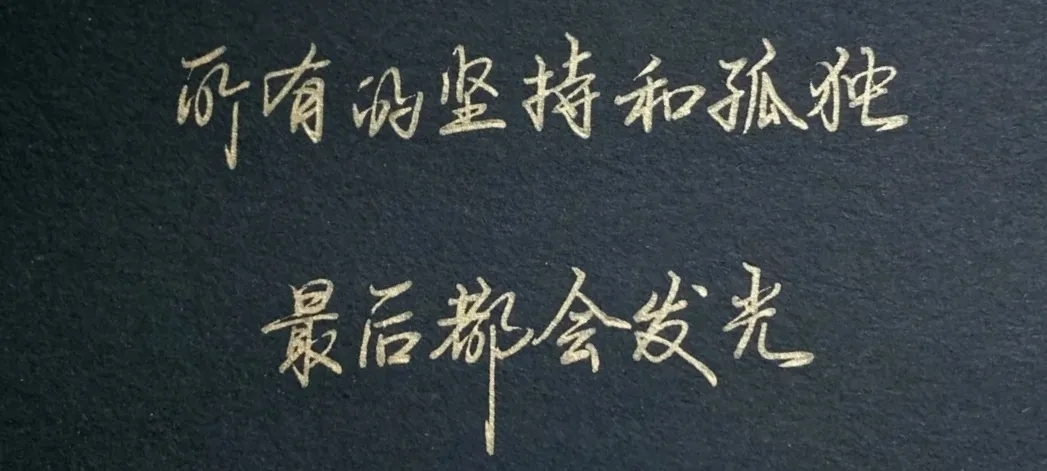 所有的坚持和孤独
最后都会发光